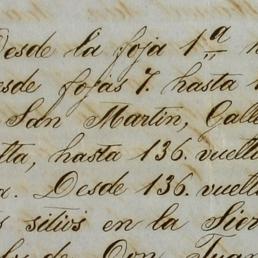 Desde la foja 1.ª
esde fojas 7. hasta
San Martin, Galle
lta, hasta 136. vuelt
a. Desde 136. vuelt
s sitios en la Sier
de Don Juan